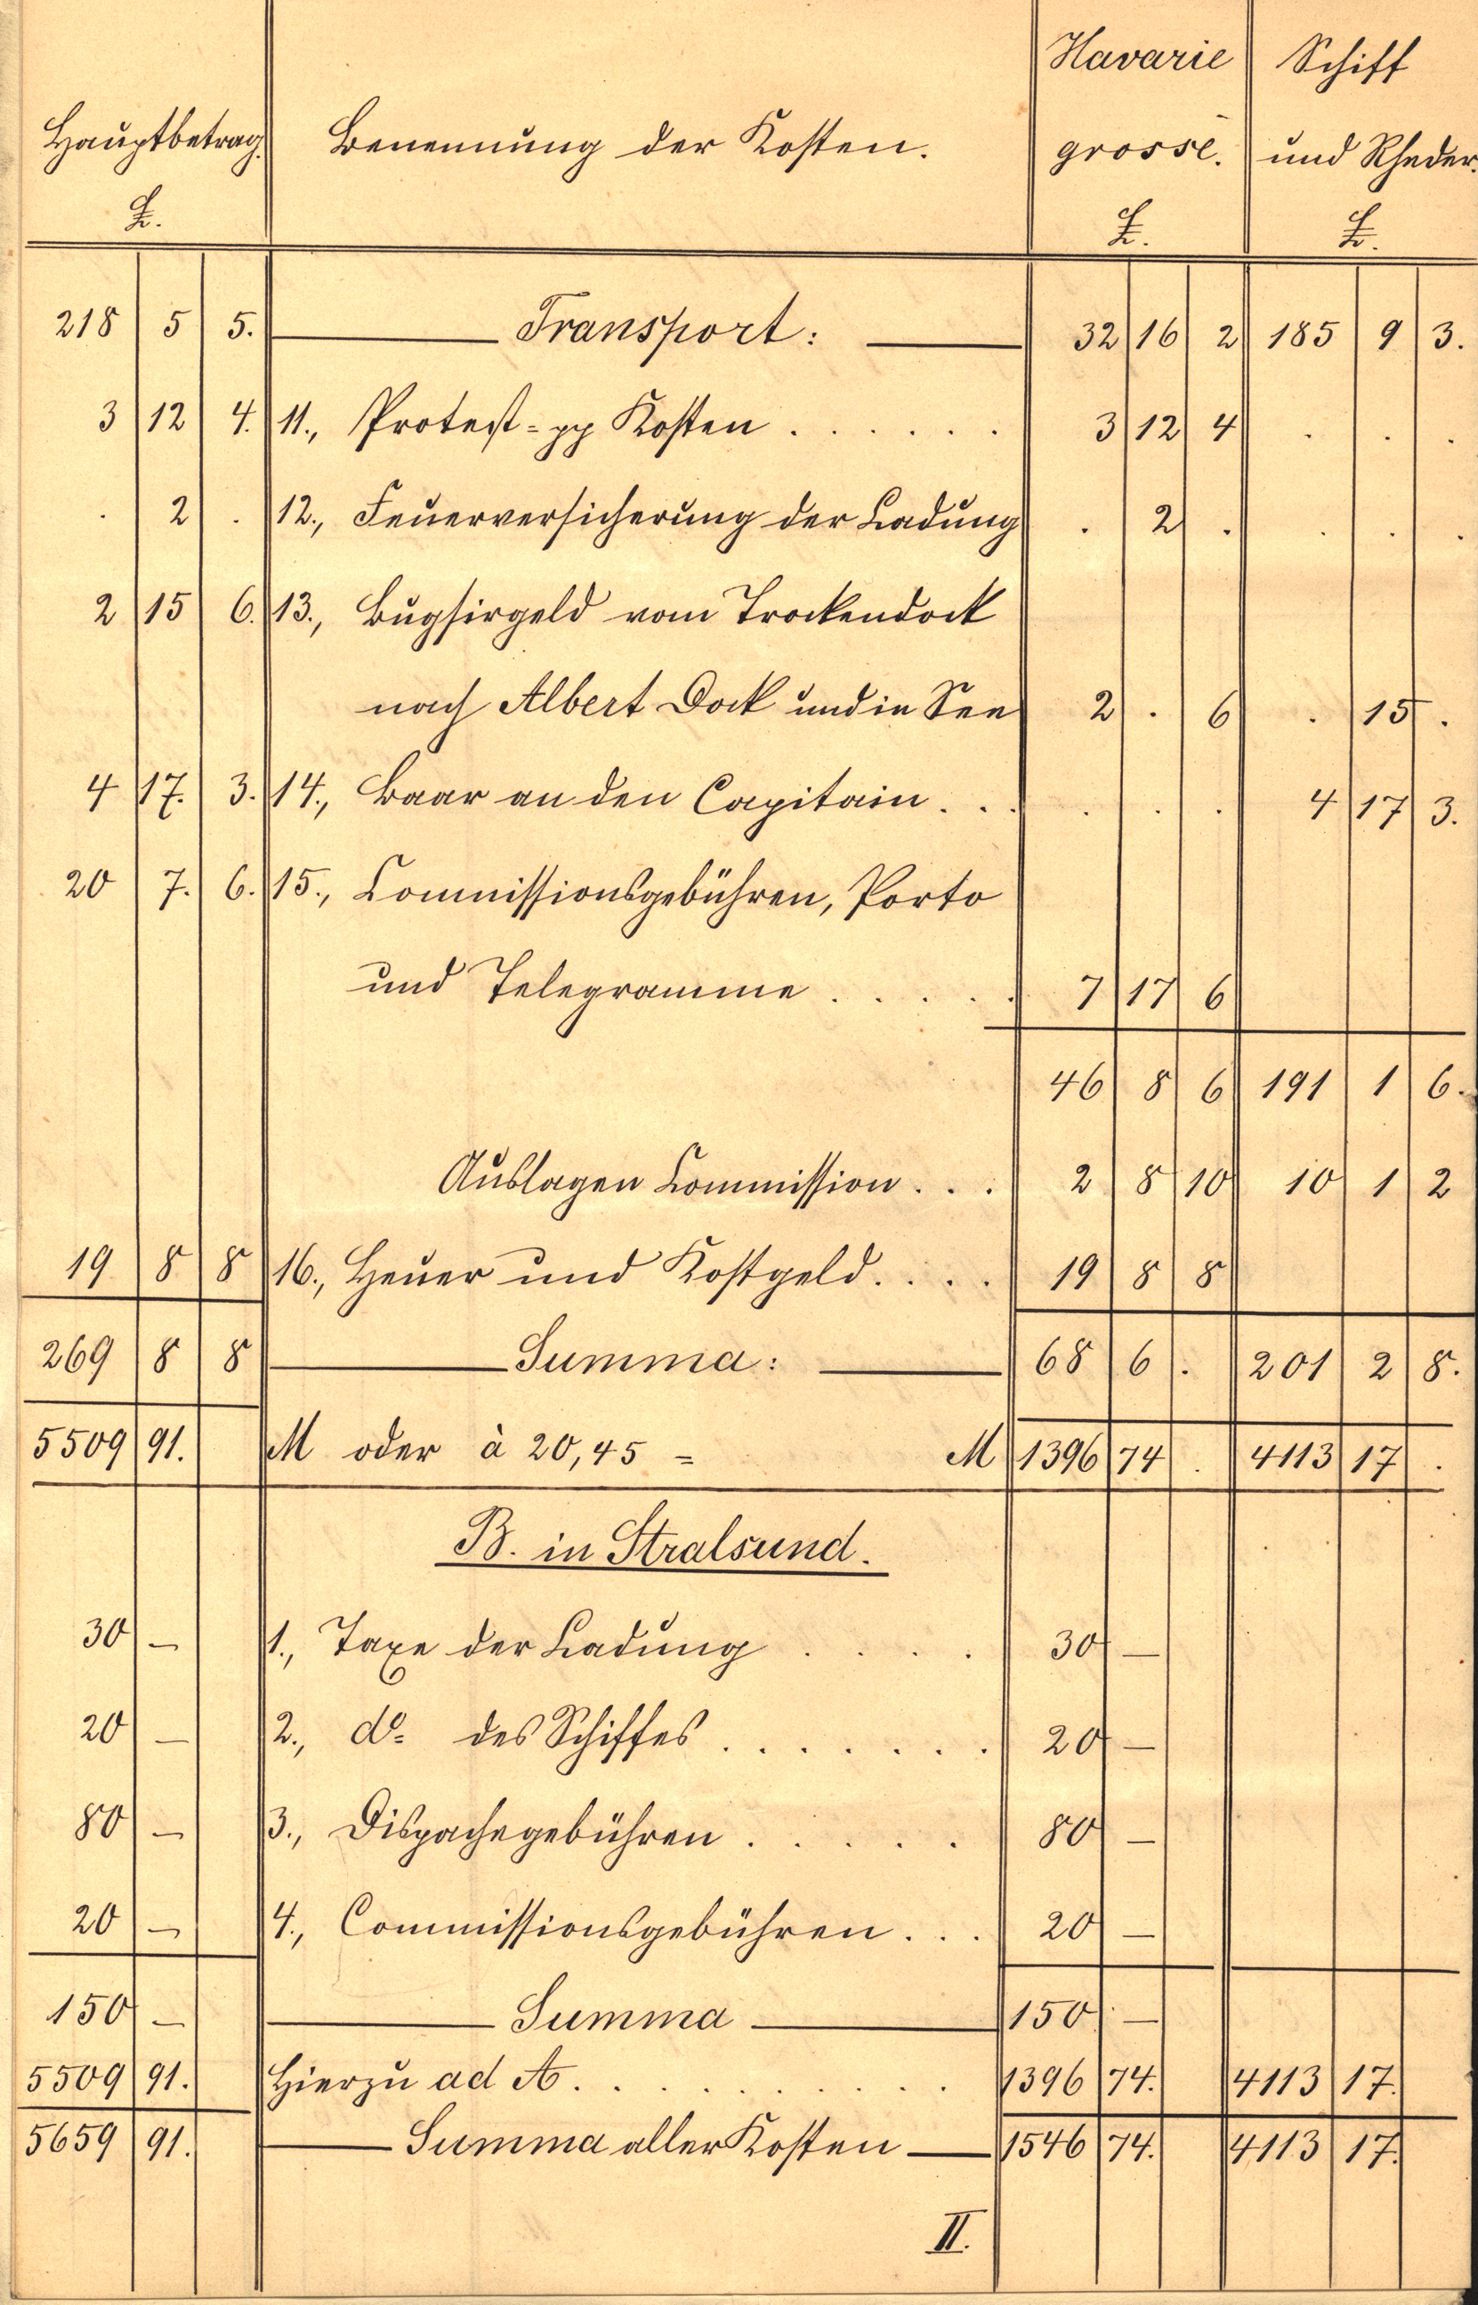 Hauptbetrag. Benennung der Kosten. Havarie grosse. Schiff und Rheder.
£. £. £.
218 5 5. Transport: 32 16 2 185 9 3.
3 12 4. 11., Protest=pp Kosten . . . . . . 3 12 4 . . .
. 2 . 12., Feuerversicherung der Ladung . 2 . . . .
2 15 6. 13., Bugsirgeld vom Trockendock
nach Albert Dock und in See 2 . 6 . 15 .
4 17. 3. 14., Baar an den Capitain . . . . . . 4 17 3.
20 7. 6. 15., Commissionsgebühren, Porto
und Telegramme . . . . . 7 17 6
46 8 6 191 1 6.
Auslagen Commission . . . 2 8 10 10 1 2
19 8 8 16., Heuer und Kostgeld. . . . 19 8 8
269 8 8 Summa: 68 6 . 201 2 8.
5509 91. M oder à 20,45 = M 1396 74 . 4113 17 .
B. in Stralsund.
30 — 1., Taxe der Ladung . . . . 30 —
20 — 2., do= des Schiffes . . . . . . . 20 —
80 — 3., Dispachegebühren . . . . . 80 —
20 — 4., Commissionsgebühren . . . 20 —
150 — Summa 150 —
5509 91. Hierzu ad A. . . . . . . . . . 1396 74. 4113 17.
5659 91. Summa aller Kosten 1546 74. 4113 17.
II.